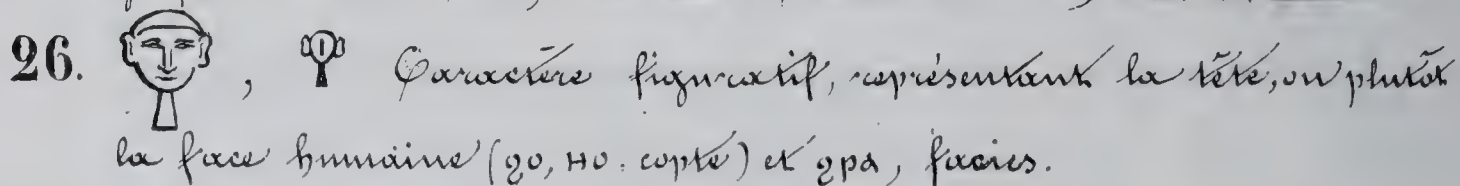 26. 𓁷, 𓁷 Caractère figuratif, représentant la tête, ou plutôt
la face humaine (ϩο, ʜᴏ. copte) et ϩρⲁ, facies.